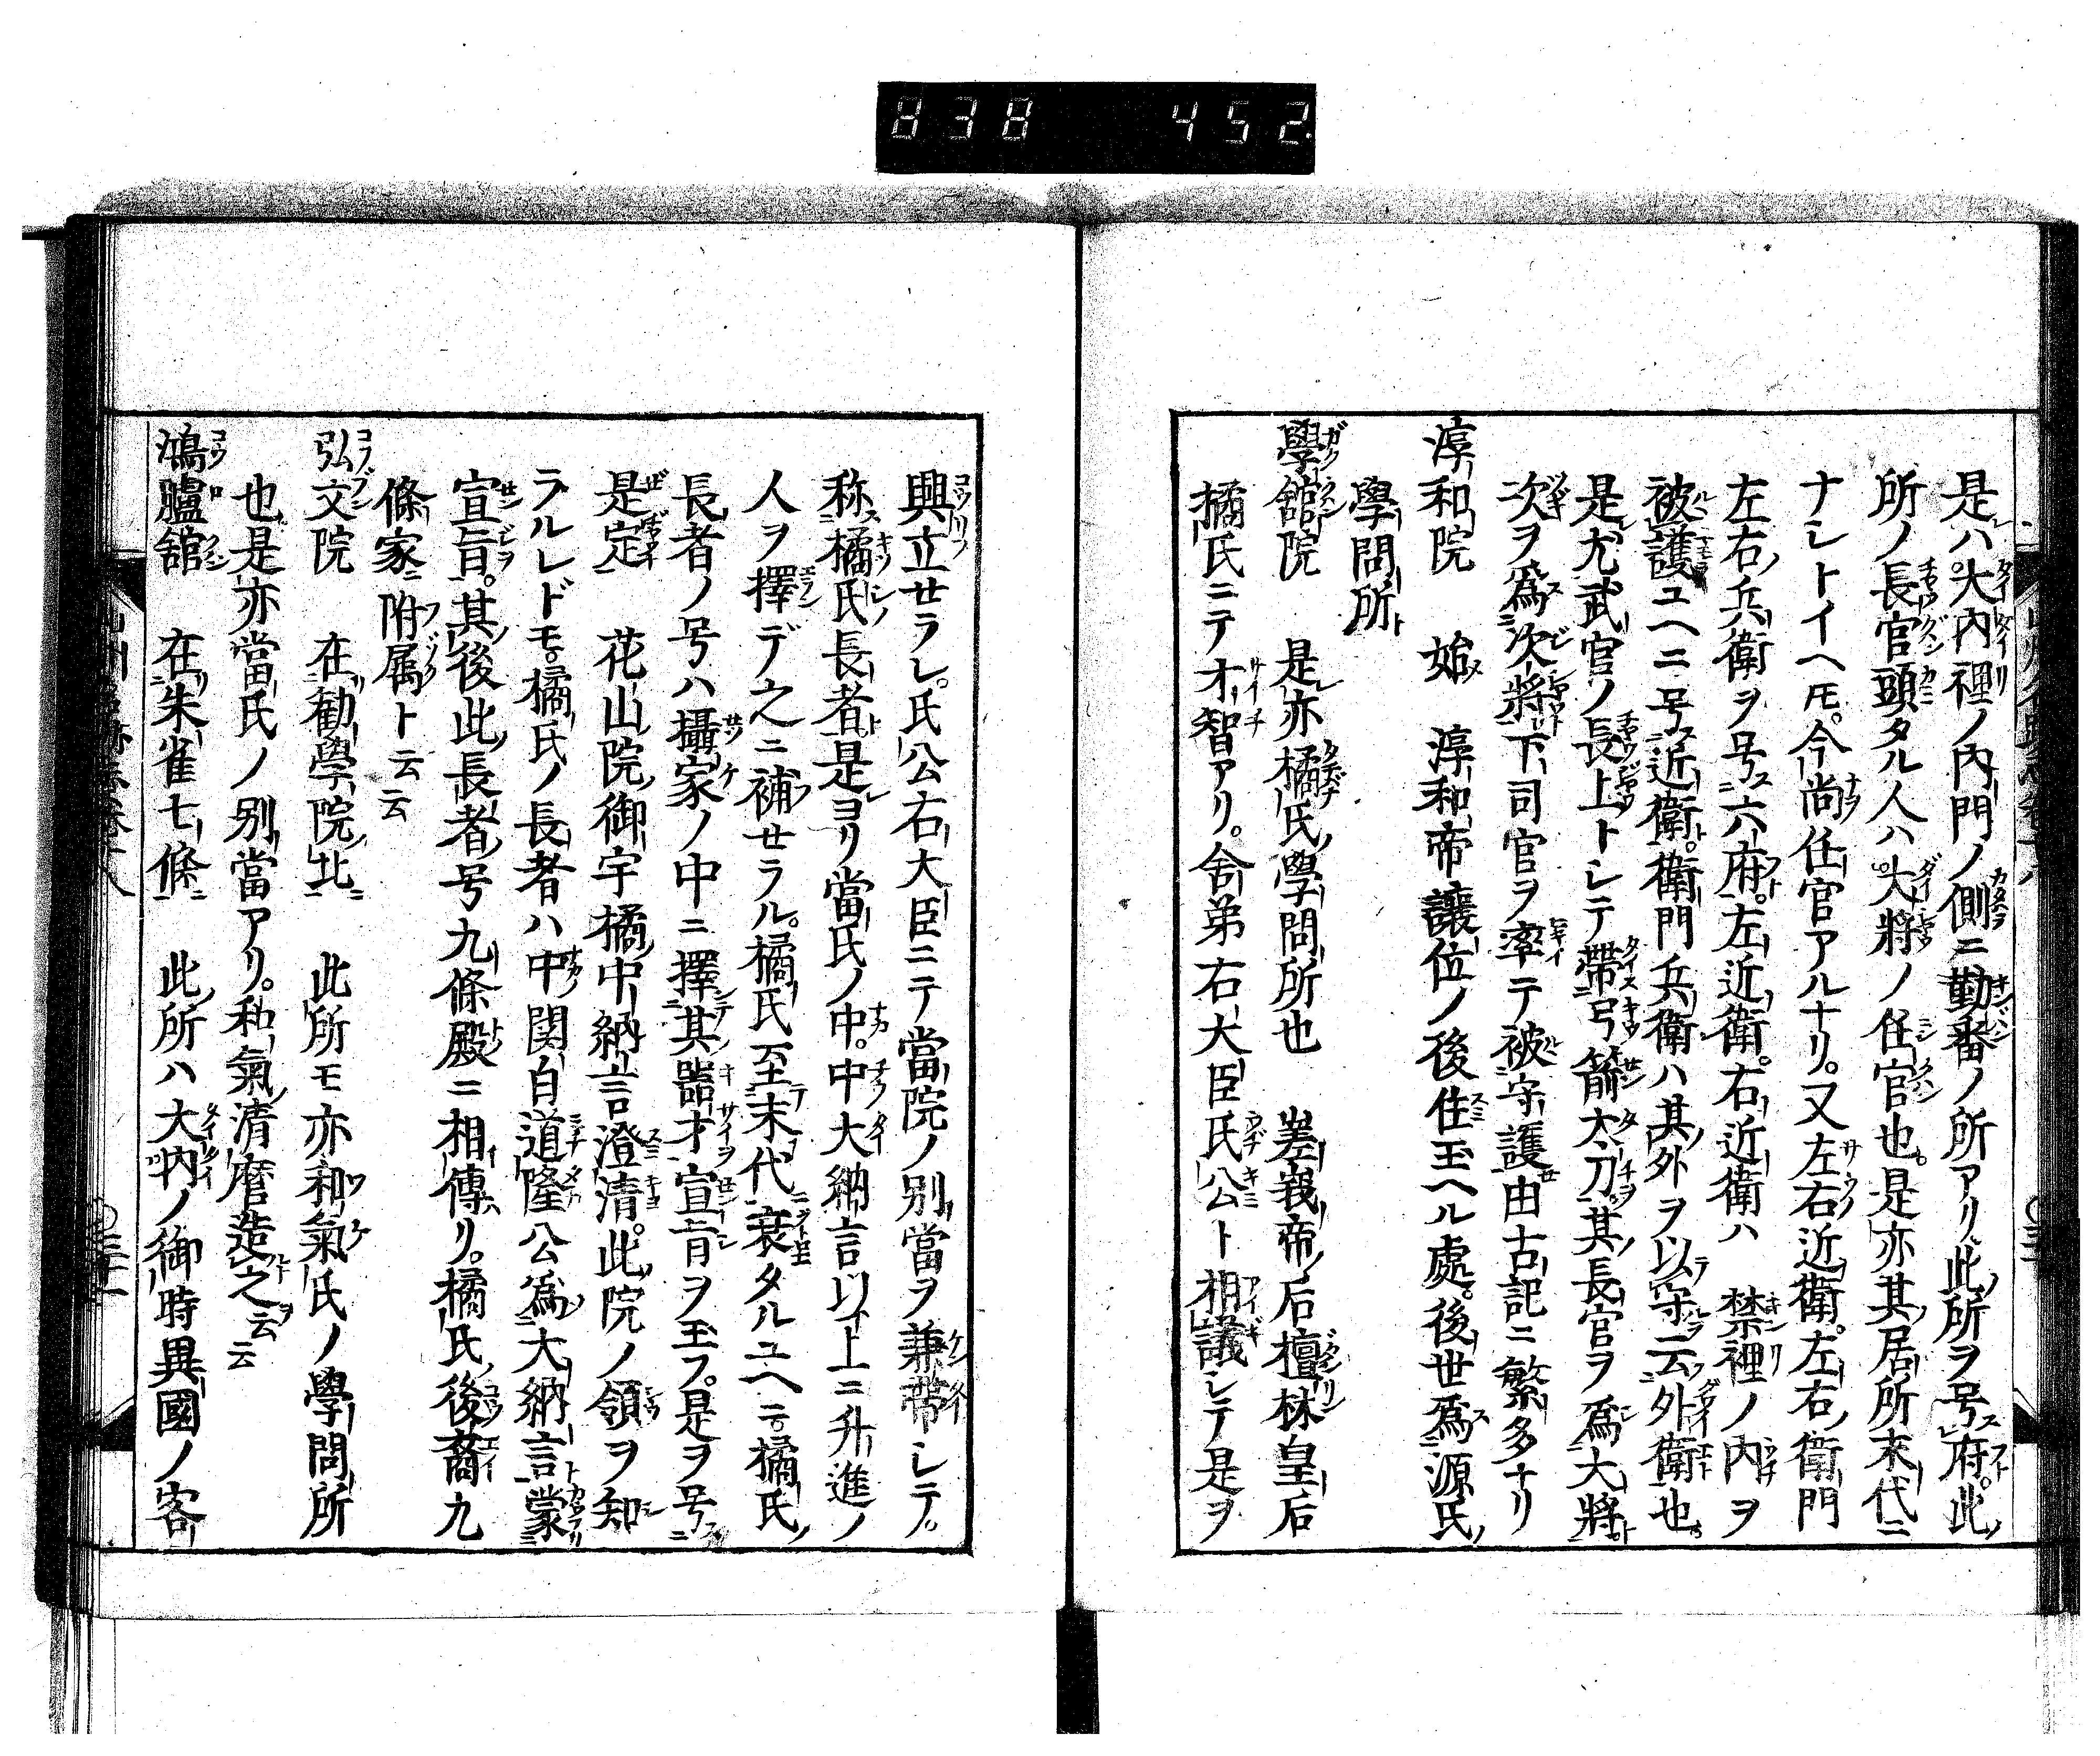 838 452
是ハ大內裡ノ內門ノ側ニ勤番ノ所アリ此所ヲ号府此
所ノ長官頭タル人ハ大將ノ任官也是亦其居所末代ニ
ナシトイヘ𪜈今尚任官アルナリ又左右近衛左右衛門
左右兵衛ヲ号六府左近衛右近衛ハ 禁裡ノ內ヲ
被護ユヘニ号近衛衛門兵衛ハ其外ヲ以守云外衛也
是尤武官ノ長上トシテ帶弓箭大刀其長官ヲ爲大將
次ヲ爲次將下司官ヲ率テ被守護由古記ニ繁多ナリ
淳和院 始 淳和帝讓位ノ後住玉ヘル處後世爲源氏
學問所
學舘院 是亦橘氏學問所也 嵳峩帝后檀林皇后
橘氏ニテ才智アリ舍弟右大臣氏公ト相議シテ是ヲ
興立セラレ氏公右大臣ニテ當院ノ別當ヲ兼帶シテ
称橘氏長者是ヨリ當氏ノ中中大納言以上ニ升進ノ
人ヲ擇デ之ニ補セラル橘氏至末代衰タルユヘニ橘氏
長者ノ号ハ攝家ノ中ニ擇其器才宣旨ヲ玉フ是ヲ号
是定 花山院御宇橘中納言澄清此院ノ領ヲ知
ラルレドモ橘氏ノ長者ハ中関白道隆公爲大納言蒙
宣旨其後此長者号九條殿ニ相傳リ橘氏後裔九
條家附属ト云云
弘文院 在勸學院北 此所モ亦和氣氏ノ學問所
也是亦當氏ノ別當アリ和氣清麿造之云云
鴻臚舘 在朱雀七條 此所ハ大內ノ御時異國ノ客